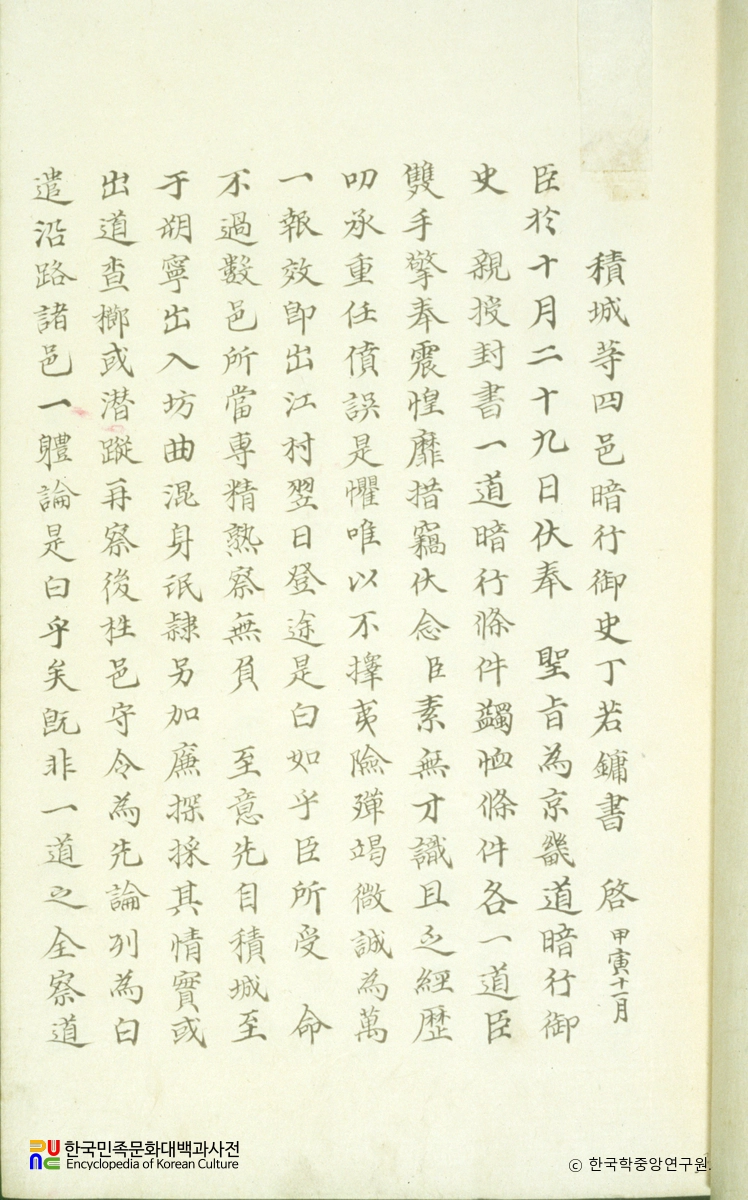 積城等四邑暗行御史丁若鏞書 啓 甲寅十一月
臣於十月二十九日伏奉 聖旨為京畿道暗行御
史 親授封書一道暗行條件蠲恤條件各一道臣
雙手擎奉震惶靡措竊伏念臣素無才識且乏經歷
叨承重任僨誤是懼唯以不擇夷險殫竭微誠為萬
一報效卽出江村翌日登途是白如乎臣所受 命
不過數邑所當專精熟察無負 至意先自積城至
于朔寧出入坊曲混身氓隷另加廉探採其情實或
出道查櫛或潛蹤再察後牲邑守令為先論列為白
遣沿路諸邑一體論是白乎矣旣非一道之全察道
한국민족문화대백과사전
Encyclopedia of Korean Culture
© 한국학중앙연구원.